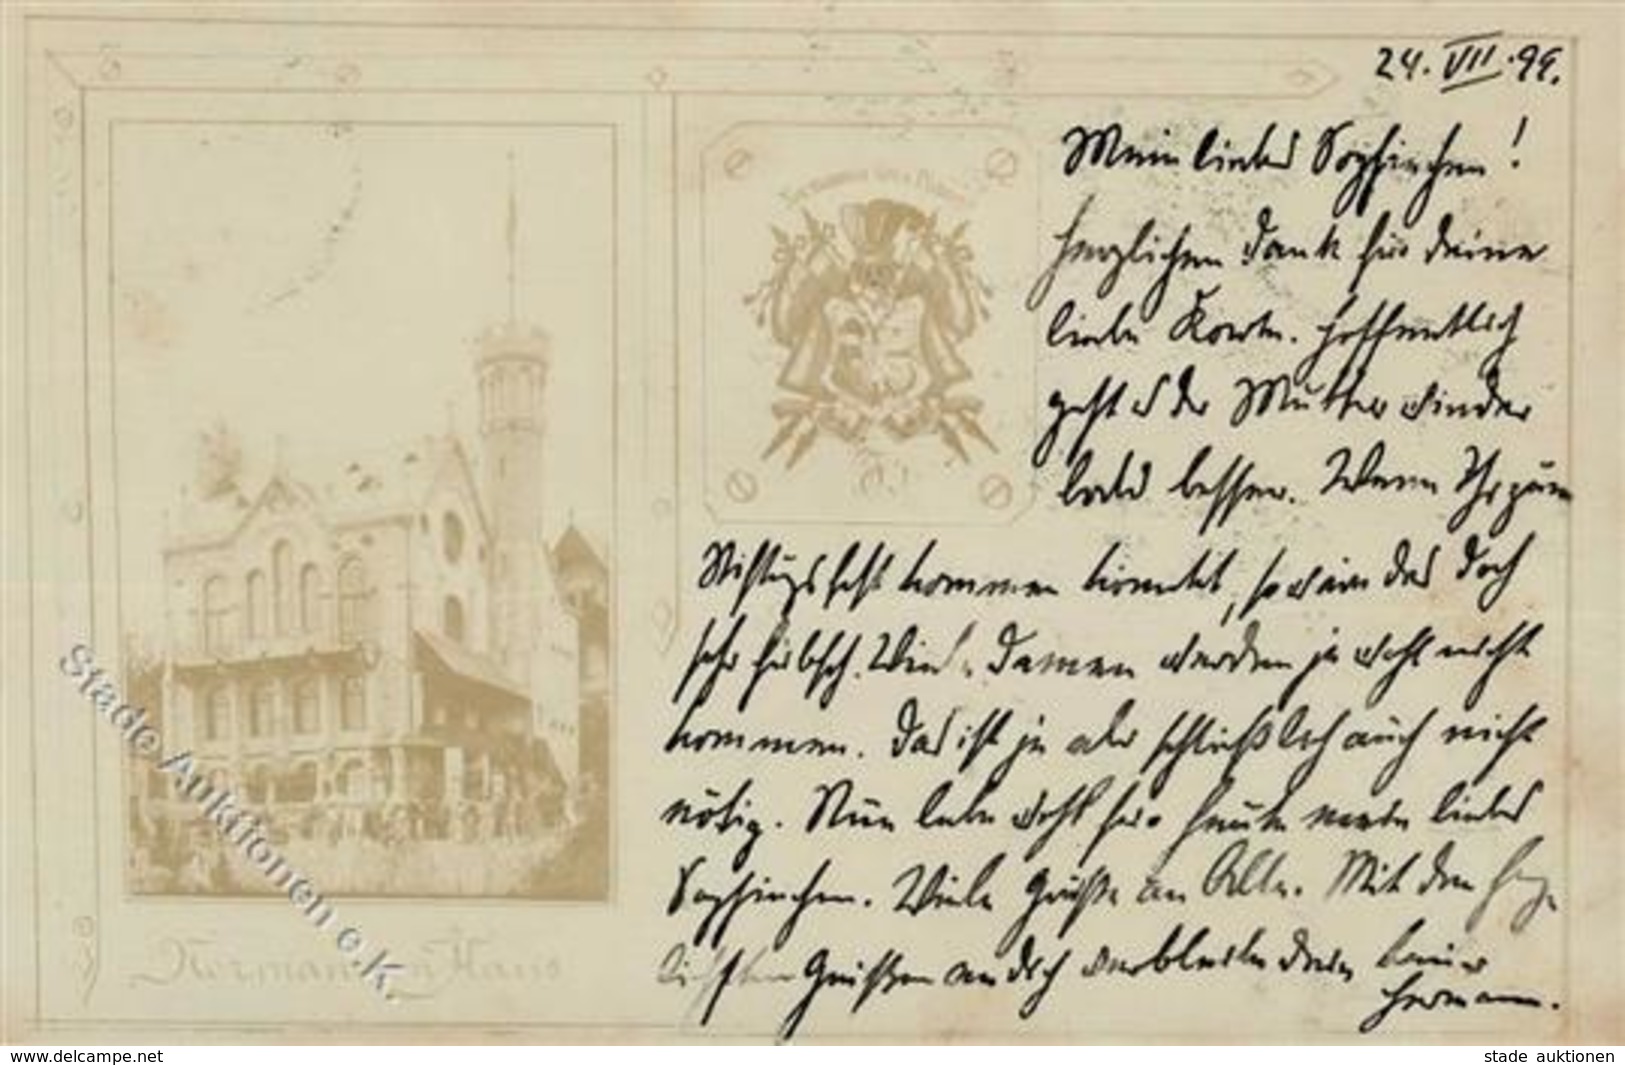 24. VII. 99.
Mein liebes Sophiechen!
Herzlichen Dank für deine
liebe Karte. Hoffentlich
geht es der Mutter wieder
bald besser. Wenn Ihr zum
Stiftungsfest kommen könntet, so wäre das doch
sehr hübsch. Damen werden ja wohl nicht
kommen. Das ist ja aber schließlich auch nicht
nötig. Nun lebe wohl für heute mein liebes
Sophiechen. Viele Grüße an Alle. Mit den herz-
lichsten Grüßen an dich verbleibe dein
Hermann.
Normannen Haus
Stade Auktionen e.K.
www.delcampe.net
stade auktionen